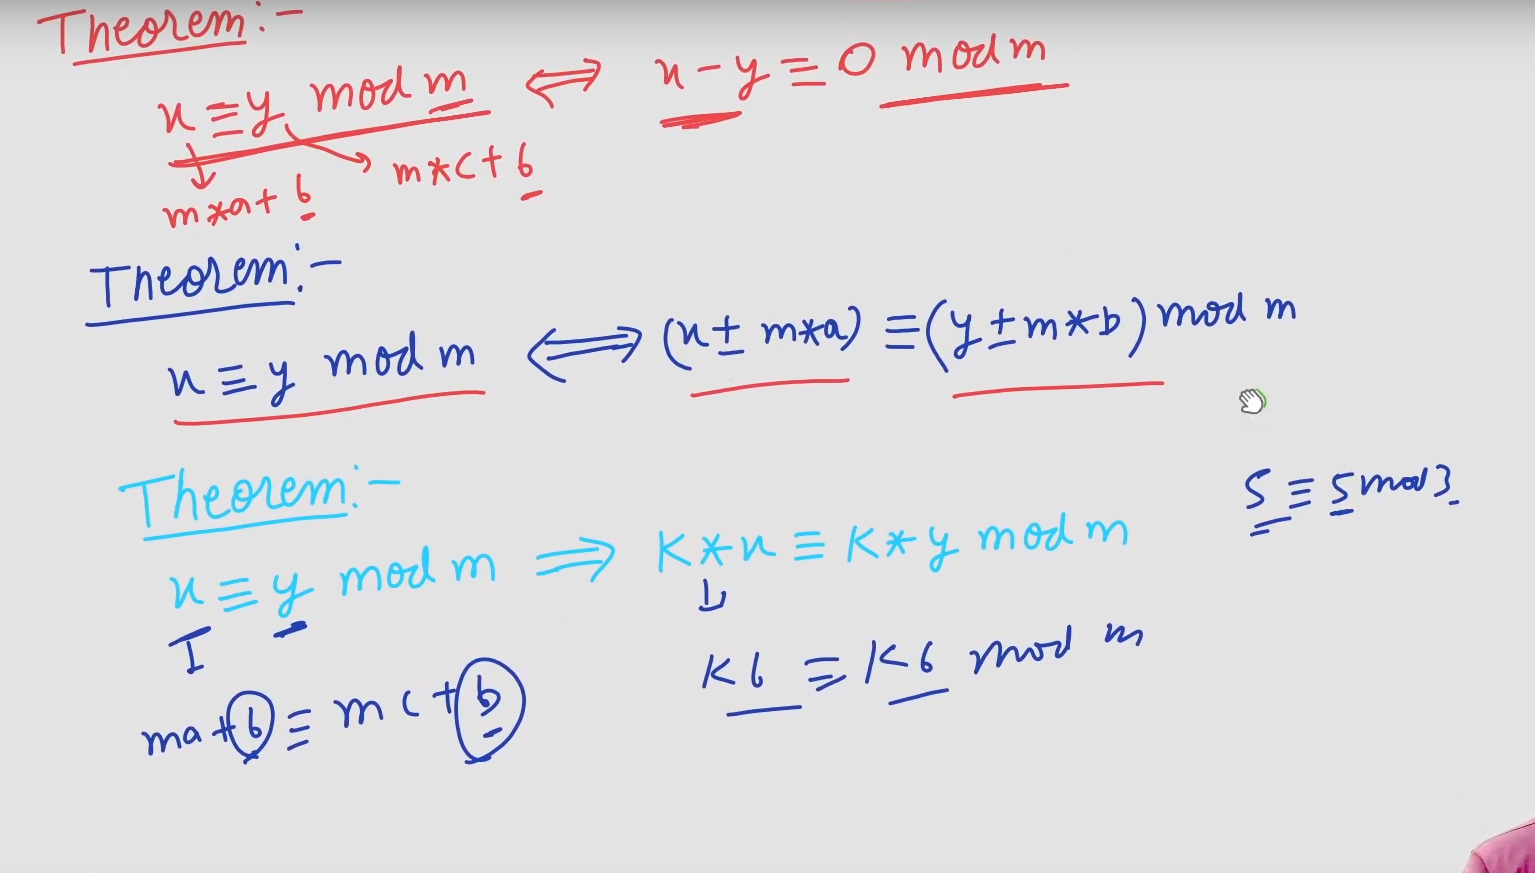 Theorem:-
x ≡ y mod m ⟺ x - y ≡ 0 mod m
m*a + b
m*c + b
Theorem:-
x ≡ y mod m ⟺ (x ± m*a) ≡ (y ± m*b) mod m
Theorem:-
5 ≡ 5 mod 3
x ≡ y mod m ⟹ K*x ≡ K*y mod m
Kb ≡ Kb mod m
ma + b ≡ mc + b